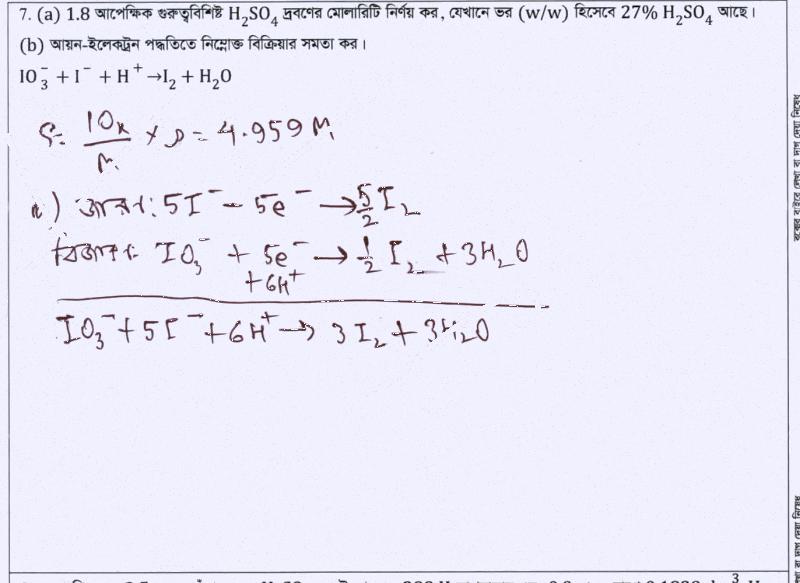 7. (a) 1.8 আপেক্ষিক গুরুত্ববিশিষ্ট H₂SO₄ দ্রবণের মোলারিটি নির্ণয় কর, যেখানে ভর (w/w) হিসেবে 27% H₂SO₄ আছে।
(b) আয়ন-ইলেকট্রন পদ্ধতিতে নিম্নোক্ত বিক্রিয়ার সমতা কর।
IO₃⁻ + I⁻ + H⁺ → I₂ + H₂O
S = 10x/M × ρ = 4.959 M
) জারণ: 5I⁻ - 5e⁻ → 5/2 I₂
বিজারণ: IO₃⁻ + 5e⁻ + 6H⁺ → 1/2 I₂ + 3H₂O
IO₃⁻ + 5I⁻ + 6H⁺ → 3I₂ + 3H₂O